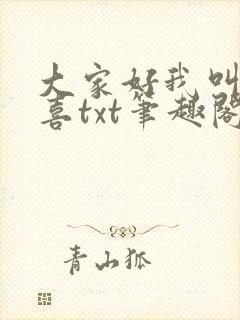 大家好我叫
喜txt笔趣阁
青山狐